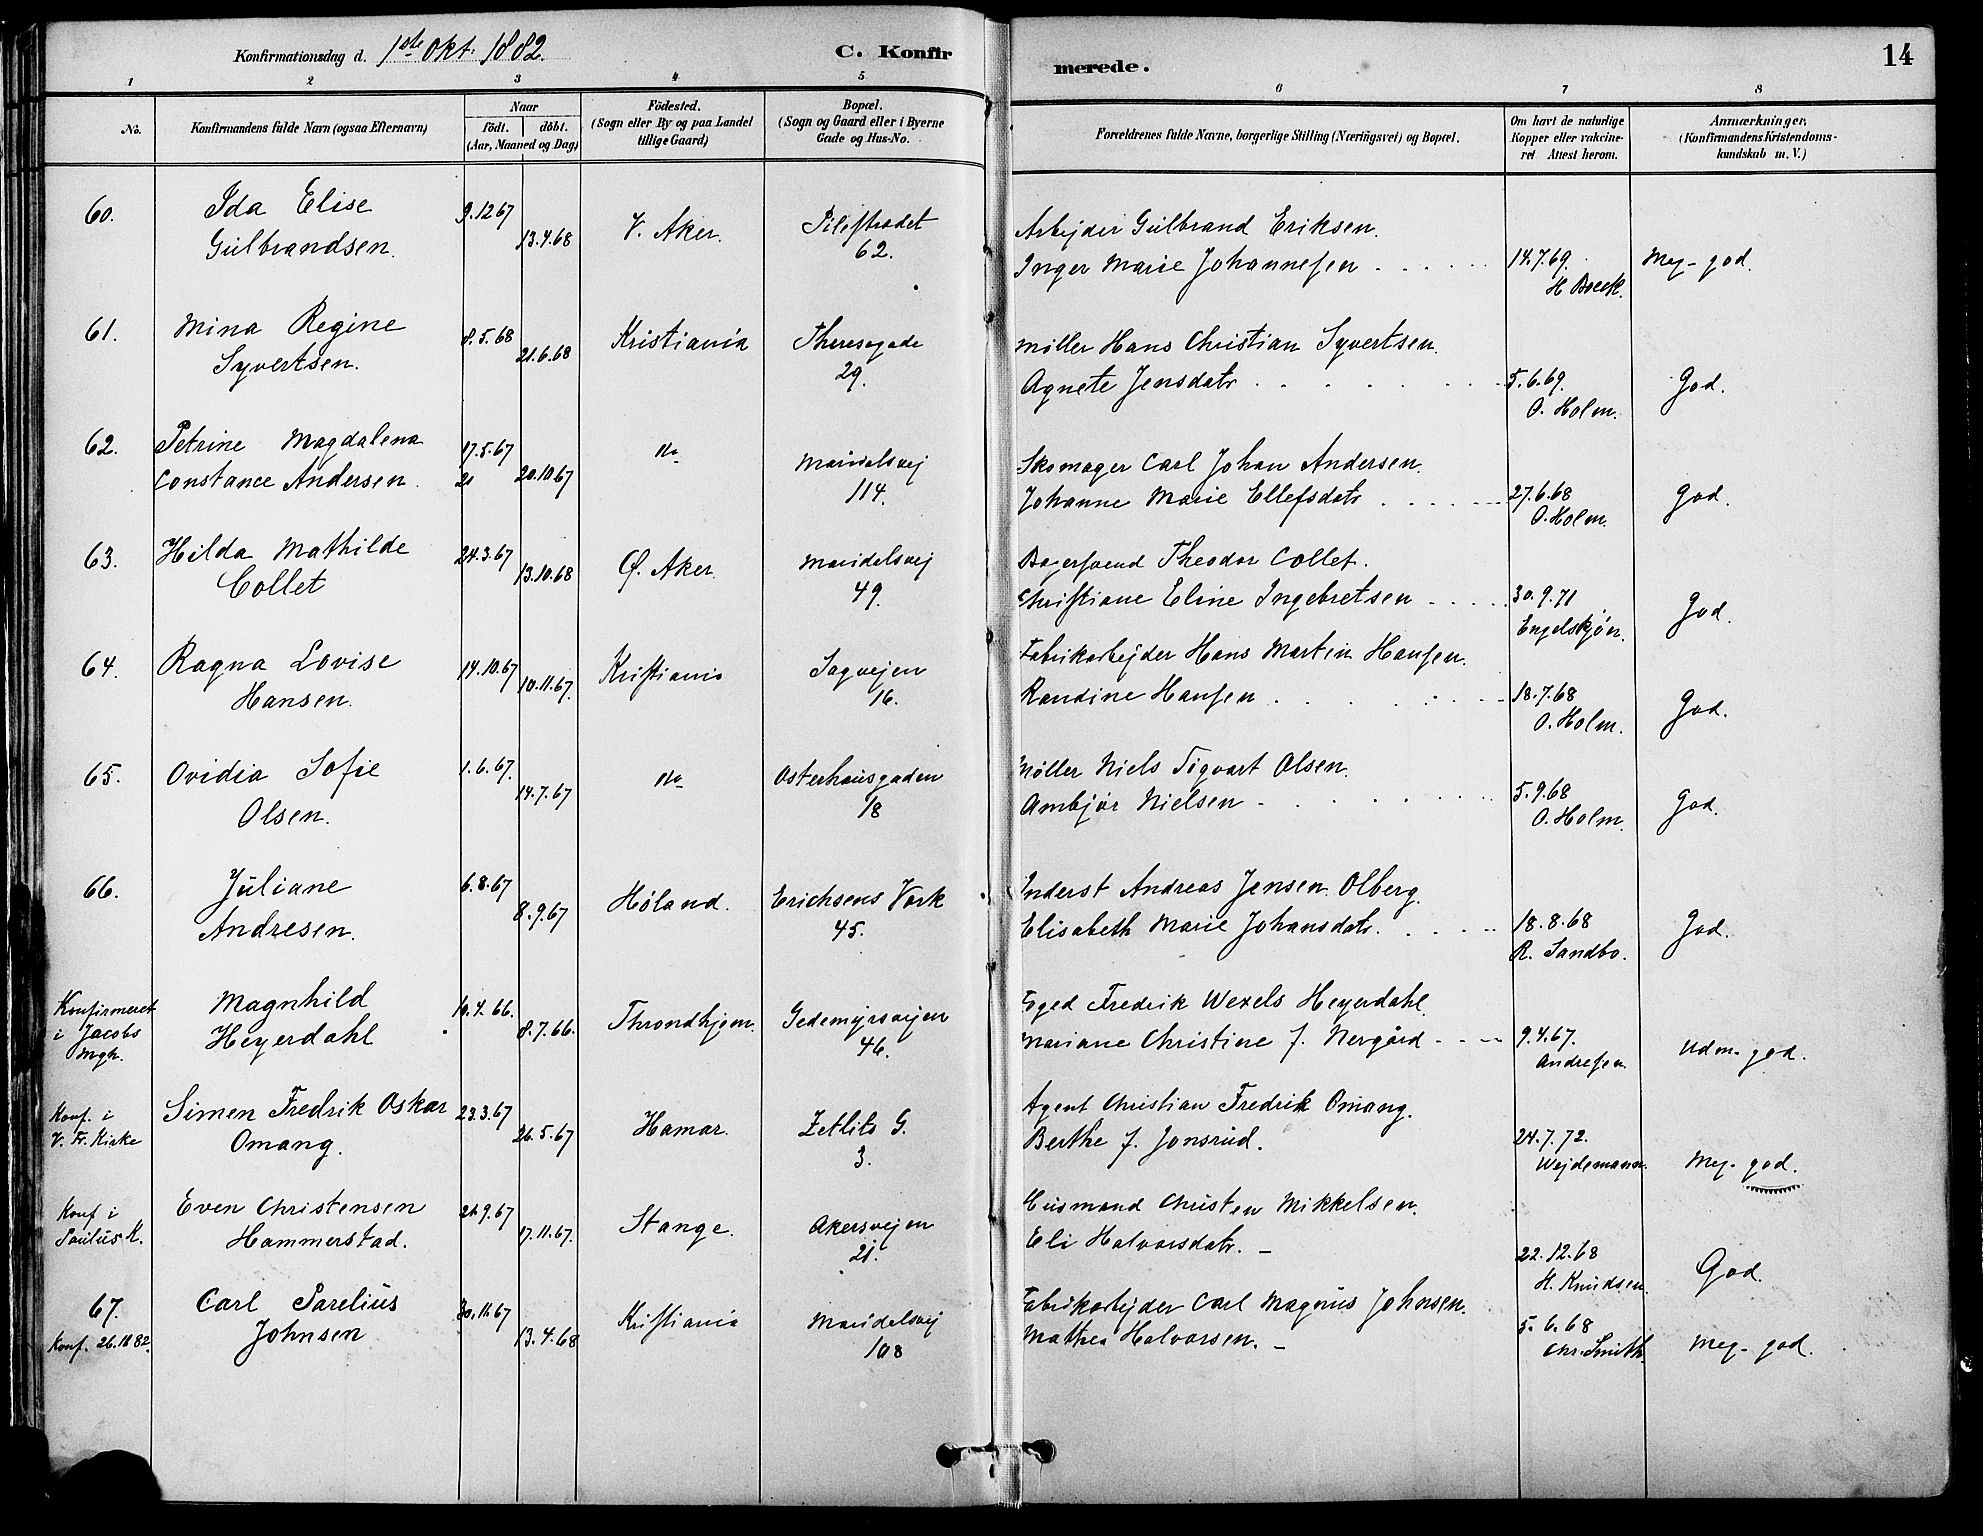 Konfirmationsdag d. 1ste Okt. 1882.
C. Konfir
merede.
14
1 2 3 4 5 6 7 8
No.
Konfirmandens fulde Navn (ogsaa Efternavn)
Naar
födt. döbt.
(Aar, Maaned og Dag)
Födested.
(Sogn eller By og paa Landet
tillige Gaard)
Bopæl.
(Sogn og Gaard eller i Byerne
Gade og Hus-No.
Forældrenes fulde Navne, borgerlige Stilling (Næringsvei) og Bopæl.
Om havt de naturlige
Kopper eller vakcine-
ret Attest herom.
Anmærkninger.
(Konfirmandens Kristendoms-
kundskab m. V.)
60. Ida Elise 9.12 67 13.4.68 V. Aker. Pilestradet Arbejder Gulbrand Eriksen.
Gulbrandsen. 62. Inger Marie Johannesen 14.7.69. Meg. god.
H Boeck.
61. Mina Regine 8.5.68 21.6.68 Kristiania Theresegade Møller Hans Christian Syvertsen.
Syvertsen. 29. Agnete Jensdatr 5.6.69. God.
O. Holm.
62. Petrine Magdalena 17.5.67 Do Maridalsvej Skomager Carl Johan Andersen.
Constance Andersen. 21 20.10.67 114. Johanne Marie Ellefsdatr 27.6.68 God.
O. Holm.
63. Hilda Mathilde 24.3.67 13.10.68 Ø. Aker. Maridalsvej Bagersvend Theodor Collet.
Collet 49. Christiane Eline Ingebretsen 30.9.71 God.
Engelskjøn.
64. Ragna Lovise 14.10.67 10.11.67. Kristiania Sagvejen Fabrikarbejder Hans Martin Hansen.
Hansen. 16. Randine Hansen 18.7.68 God.
O. Holm.
65. Ovidia Sofie 1.6.67. 14.7.67 Do Osterhausgaden Møller Niels Sigvart Olsen.
Olsen. 18 Ambjør Nielsen 5.9.68 God.
O. Holm.
66. Juliane 6.8.67 8.9.67 Høland. Erichsens Værk Inderst Andreas Jensen Olberg.
Andresen. 45. Elisabeth Marie Johansdatr. 18.8.68 God.
R. Sandbo.
Konfirmeret Magnhild 10.4.66. 8.7.66. Throndhjem. Gedemyrsveien Foged Fredrik Wexels Heyerdahl
i Jacobs Heyerdahl 46. Mariane Christine f. Nergård 9.4.67. Udm. god.
Mgh. Andresen
Konf. i Simen Fredrik Oskar 23.3.67 26.5.67 Hamar. Zetlits G. Agent Christian Fredrik Omang.
V. Fr. Kirke Omang. 3. Berthe f. Jonsrud. 24.7.72.
Wejdemann. Meg. god.
Konf i Even Christensen 21.9.67 17.11.67. Stange. Akersvejen Husmand Christen Mikkelsen.
Paulus K. Hammerstad. 21. Eli Halvorsdatr. 22.12.68 God.
H. Knudsen.
67. Carl Parelius 30.11.67 13.4.68 Kristiania Maridalsvej Fabrikarbejder Carl Magnus Johnsen.
Konf. 26.11 82. Johnsen 108 Mathea Halvorsen. 5.6.68 Meg. god.
Chr. Smith.